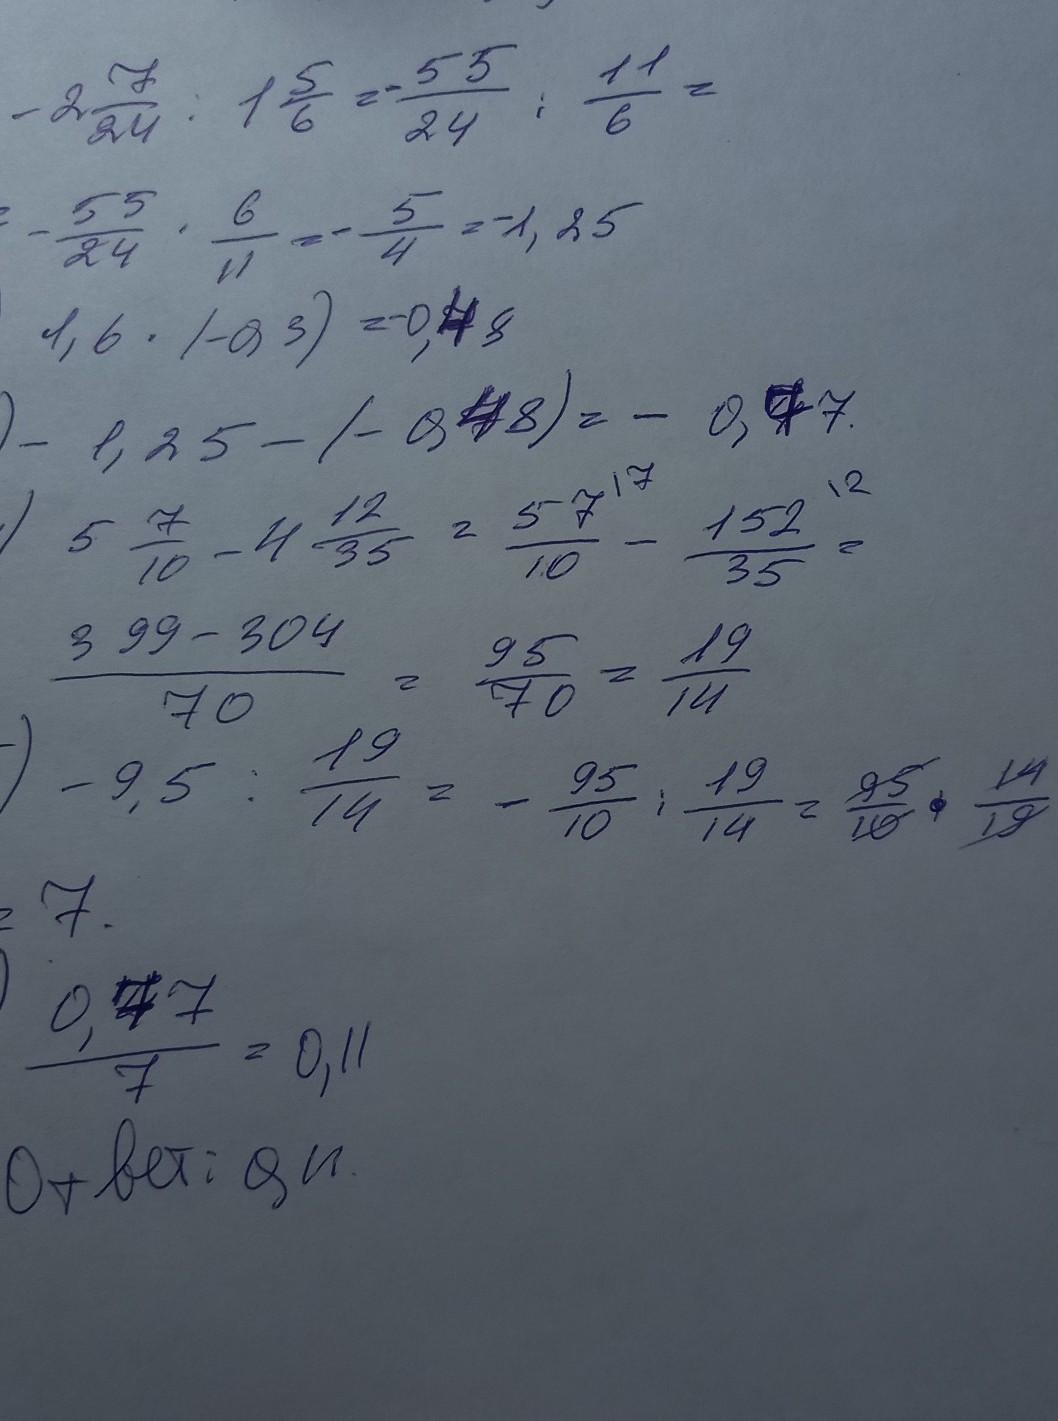 -2 7/24 : 1 5/6 = - 55/24 : 11/6 =
= - 55/24 · 6/11 = - 5/4 = -1,25
1,6 · (-0,3) = -0,48
) - 1,25 - (-0,48) = - 0,77.
) 5 7/10 - 4 12/35 = 57/10 \7 - 152/35 \2 =
399-304/70 = 95/70 = 19/14
) -9,5 : 19/14 = - 95/10 : 19/14 = 95/10 · 14/19
= 7.
) 0,77/7 = 0,11
Ответ: 0,11.